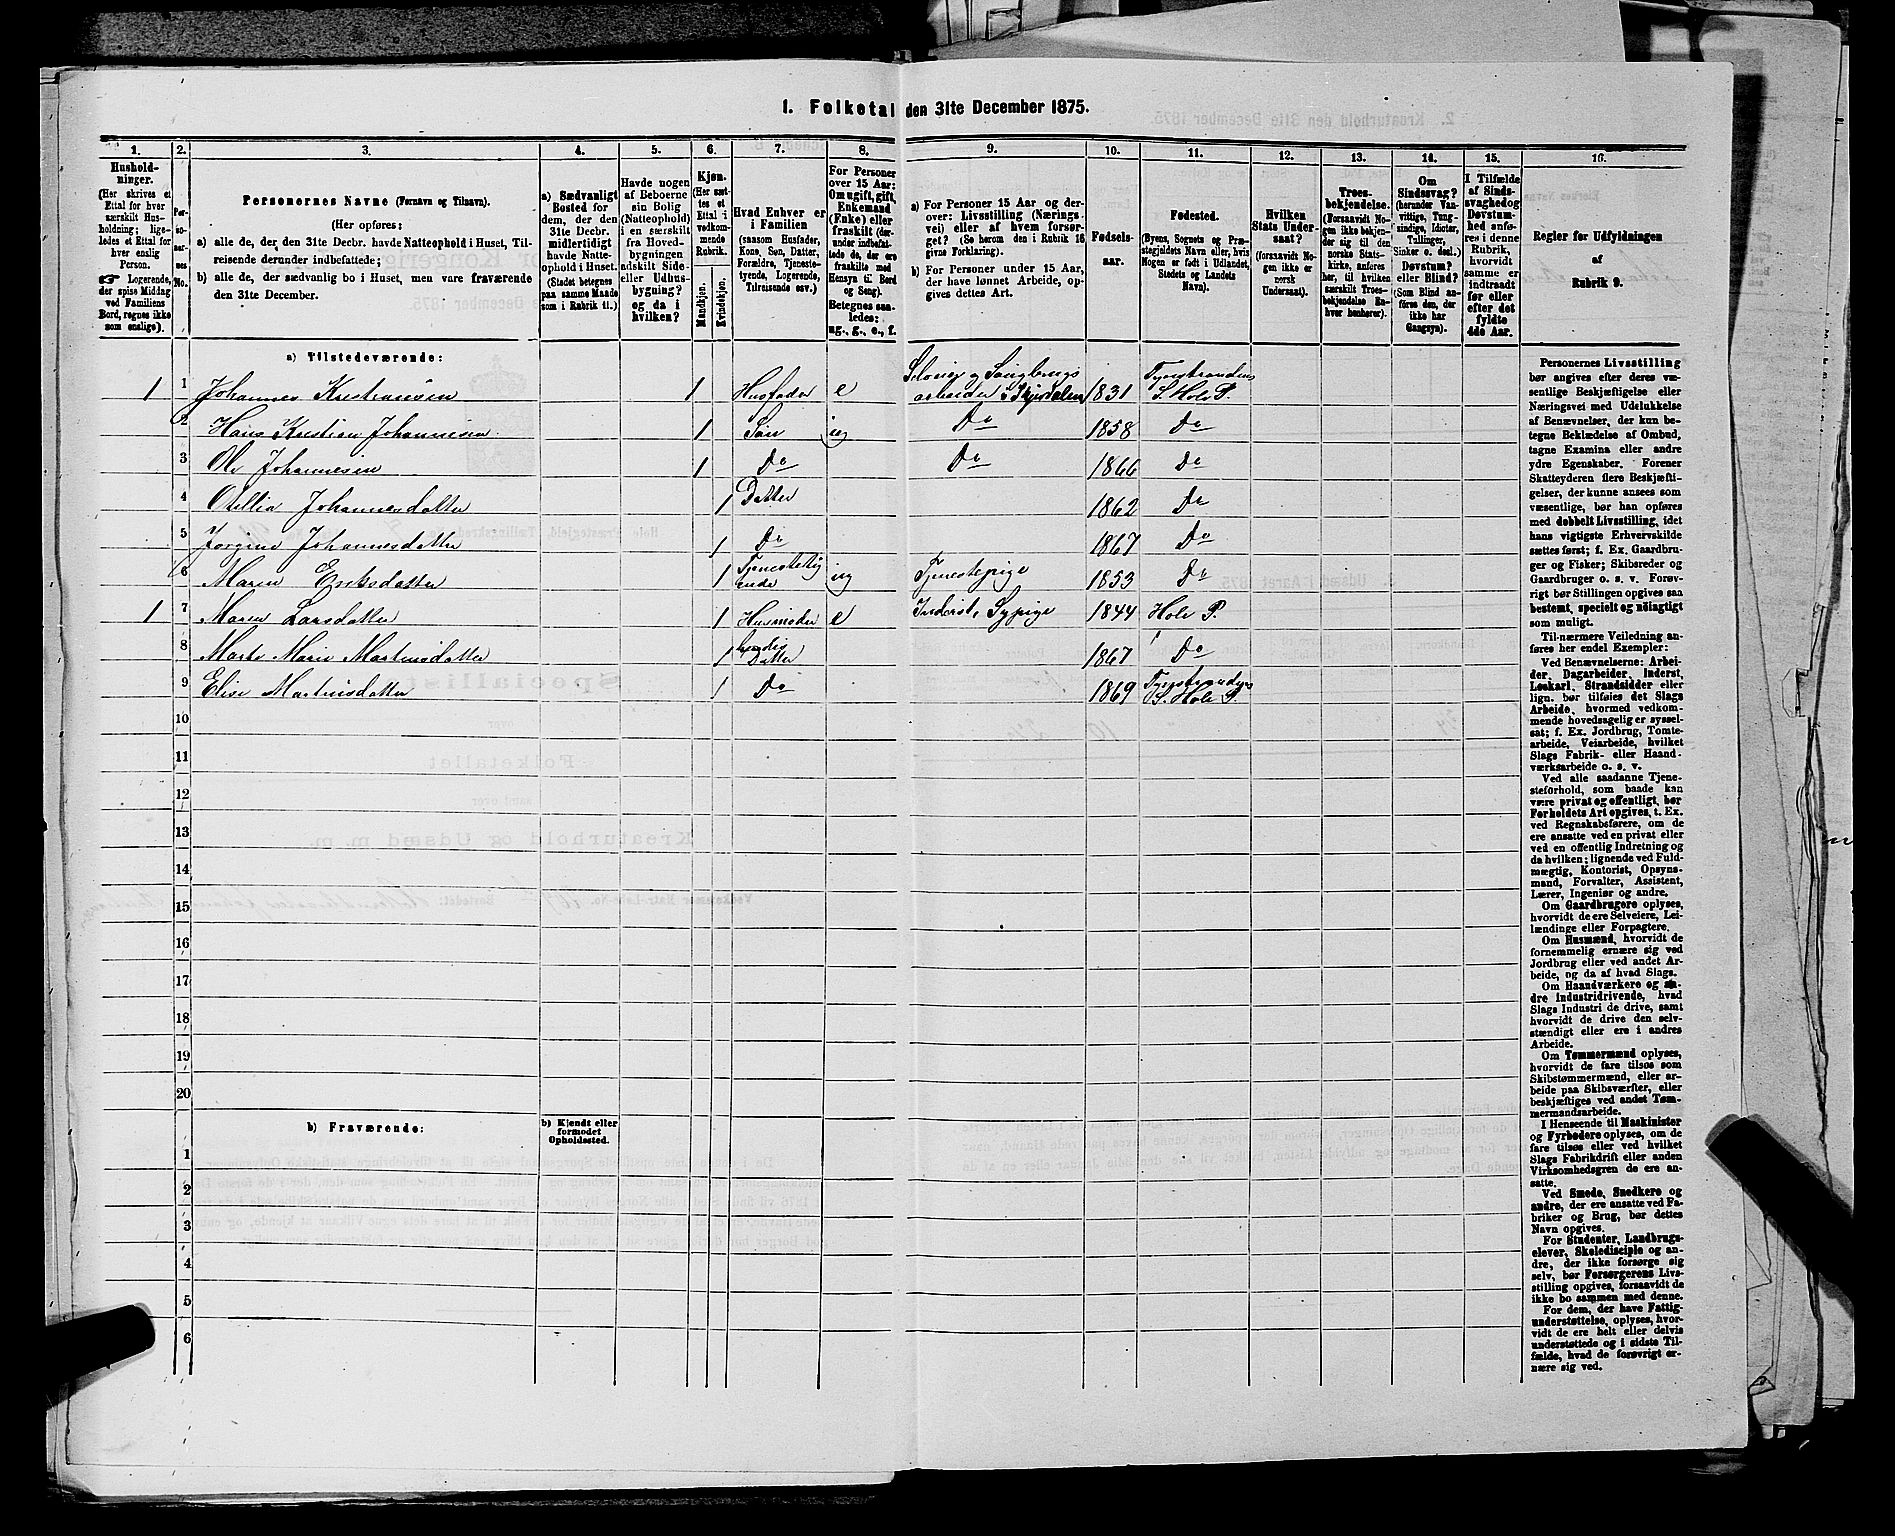 1. Folketal den 31te December 1875.
1. 2. 3. 4. 5. 6. 7. 8. 9. 10. 11. 12. 13. 14. 15. 16.
Hushold-
ninger.
(Her skrives et
Ettal for hver
særskilt Hus-
holdning; lige-
ledes et Ettal for
hver enslig
Person.
☞ Logerende,
der spise Middag
ved Familiens
Bord, regnes ikke
som enslige).
Per-
so-
ner-
nes
No.
Personernes Navne (Fornavn og Tilnavn).
(Her opføres:
a) alle de, der den 31te Decbr. havde Natteophold i Huset, Til-
reisende derunder indbefattede;
b) alle de, der sædvanlig bo i Huset, men vare fraværende
den 31te December.
a) Sædvanligt
Bosted for
dem, der den
31te Decbr.
midlertidigt
havde Natte-
ophold i Huset.
(Stedet betegnes
paa samme Maade
som i Rubrik 11.)
Havde nogen
af Beboerne
sin Bolig
(Natteophold)
i en særskilt
fra Hoved-
bygningen
adskilt Side-
eller Udhus-
bygning?
og da i
hvilken?
Kjøn.
(Her sæt-
tes et
Ettal i
vedkom-
mende
Rubrik.
Mandkjøn.
Kvindekjøn.
Hvad Enhver er
i Familien
(saasom Husfader,
Kone, Søn, Datter,
Forældre, Tjeneste-
tyende, Logerende,
Tilreisende osv.)
For Personer
over 15 Aar:
Om ugift, gift,
Enkemand
(Enke) eller
fraskilt (der-
under indbefat-
tede de, der ere
fraskilte med
Hensyn til Bord
og Seng).
Betegnes saa-
ledes:
ug., g., e., f.
a) For Personer 15 Aar og der-
over: Livsstilling (Nærings-
vei) eller af hvem forsør-
get? (Se herom den i Rubrik 16
givne Forklaring).
b) For Personer under 15 Aar,
der have lønnet Arbeide, op-
gives dettes Art.
Fødsels-
aar.
Fødested.
(Byens, Sognets og Præ-
stegjeldets Navn eller, hvis
Nogen er født i Udlandet,
Stedets og Landets
Navn).
Hvilken
Stats Under-
saat?
(forsaavidt No-
gen ikke er
norsk
Undersaat).
Troes-
bekjendelse.
(Forsaavidt No-
gen ikke bekjen-
der sig til den
norske Stats-
kirke, anføres
her, til hvilken
særskilt Troes-
bekjendelse En-
hver henhører).
Om
Sindssvag?
(herunder Van-
vittige, Tung-
sindige, Idioter,
Tullinger,
Sinker o. desl.)
Døvstum?
eller Blind?
(Som Blind an-
føres den, der
ikke har
Gangsyn).
I Tilfælde
af Sinds-
svaghed og
Døvstum-
hed anfø-
res i denne
Rubrik,
hvorvidt
samme er
indtraadt
før eller
efter det
fyldte
4de Aar.
Regler for Udfyldningen
af
Rubrik 9.
a) Tilstedeværende:
1 1 Johannes Kristiansen 1 Husfader e Selveier og Saugbrugs arbeider i Skjærdalen 1831 Tyristrandens S. Hole P.
2 Hans Kristian Johannesen 1 Søn ug Do 1858 Do
3 Ole Johannesen 1 Do Do 1866 Do
4 Otillia Johannesdatter 1 Datter 1862 Do
5 Jorgine Johannesdatter 1 Do 1867 Do
6 Maren Eriksdatter 1 Tjenestetyende ug Tjenestepige 1853 Do
1 7 Maren Larsdatter 1 Husmoder e Inderst, Sypige 1844 Hole P.
8 Marte Marie Martinsdatter 1 hendes Datter 1867 Do
9 Elise Martinsdatter 1 Do 1869 Tyristrandens S. Hole P.
10
11
12
13
14
15
16
17
18
19
20
b) Fraværende:
b) Kjendt eller
formodet
Opholdssted.
1
2
3
4
5
6
Personernes Livsstilling
bør angives efter deres væ-
sentlige Beskjæftigelse eller
Næringsvei med Udelukkelse
af Benævnelser, der kun be-
tegne Beklædelse af Ombud,
tagne Examina eller andre
ydre Egenskaber. Forener
Skatteyderen flere Beskjæfti-
gelser, der kunne ansees som
væsentlige, bør han opføres
med dobbelt Livsstilling, idet
hans vigtigste Erhvervskilde
sættes først; f. Ex. Gaardbru-
ger og Fisker; Skibsreder og
Gaardbruger o. s. v. Forøv-
rigt bør Stillingen opgives saa
bestemt, specielt og nöiagtigt
som muligt.
Til nærmere Veiledning an-
føres her endel Exempler:
Ved Benævnelserne: Arbei-
der, Dagarbeider, Inderst,
Løskarl, Strandsidder eller
lign. bør tilføies det Slags
Arbeide, hvormed vedkom-
mende hovedsagelig er syssel-
sat; f. Ex. Jordbrug, Tomte-
arbeide, Veiarbeide, hvilket
Slags Fabrik- eller Haand-
værksarbeide o. s. v.
Ved alle saadanne Tjene-
steforhold, som baade kan
være privat og offentligt, bør
Forholdets Art opgives, t. Ex.
ved Regnskabsførere, om de
ere ansatte ved en privat eller
ved en offentlig Indretning og
da hvilken; lignende ved Fuld-
mægtig, Kontorist, Opsyns-
mand, Forvalter, Assistent,
Lærer, Ingeniør og andre.
Om Gaardbrugere oplyses,
hvorvidt de ere Selveiere, Lei-
lændinge eller Forpagtere.
Om Husmænd, hvorvidt de
fornemmelig ernære sig ved
Jordbrug eller ved andet Ar-
beide, og da af hvad Slags.
Om Haandværkere og an-
dre Industridrivende, hvad
Slags Industri de drive, samt
hvorvidt de drive den selv-
stændigt eller ere i andres
Arbeide.
Om Tømmermænd oplyses,
hvorvidt de fare tilsøs som
Skibstømmermænd, eller ar-
beide paa Skibsværfter, eller
beskjæftiges ved andet Tøm-
mermandsarbeide.
I Henseende til Maskinister
og Fyrbødere oplyses, om de
fare tilsøs eller ved hvilket
Slags Fabrikdrift eller anden
Virksomhedsgren de ere an-
satte.
Ved Smede, Snedkere og
andre, der ere ansatte ved Fa-
briker og Brug, bør dettes
Navn opgives.
For Studenter, Landbrugs-
elever, Skoledisciple og an-
dre, der ikke forsørge sig
selv, bør Forsørgerens Livs-
stilling opgives, forsaavidt de
ikke bo sammen med denne.
For dem, der have Fattig-
understøttelse, oplyses, hvor-
vidt de ere helt eller delvis
understøttede og i sidste Til-
fælde, hvad de forøvrigt er-
nære sig ved.